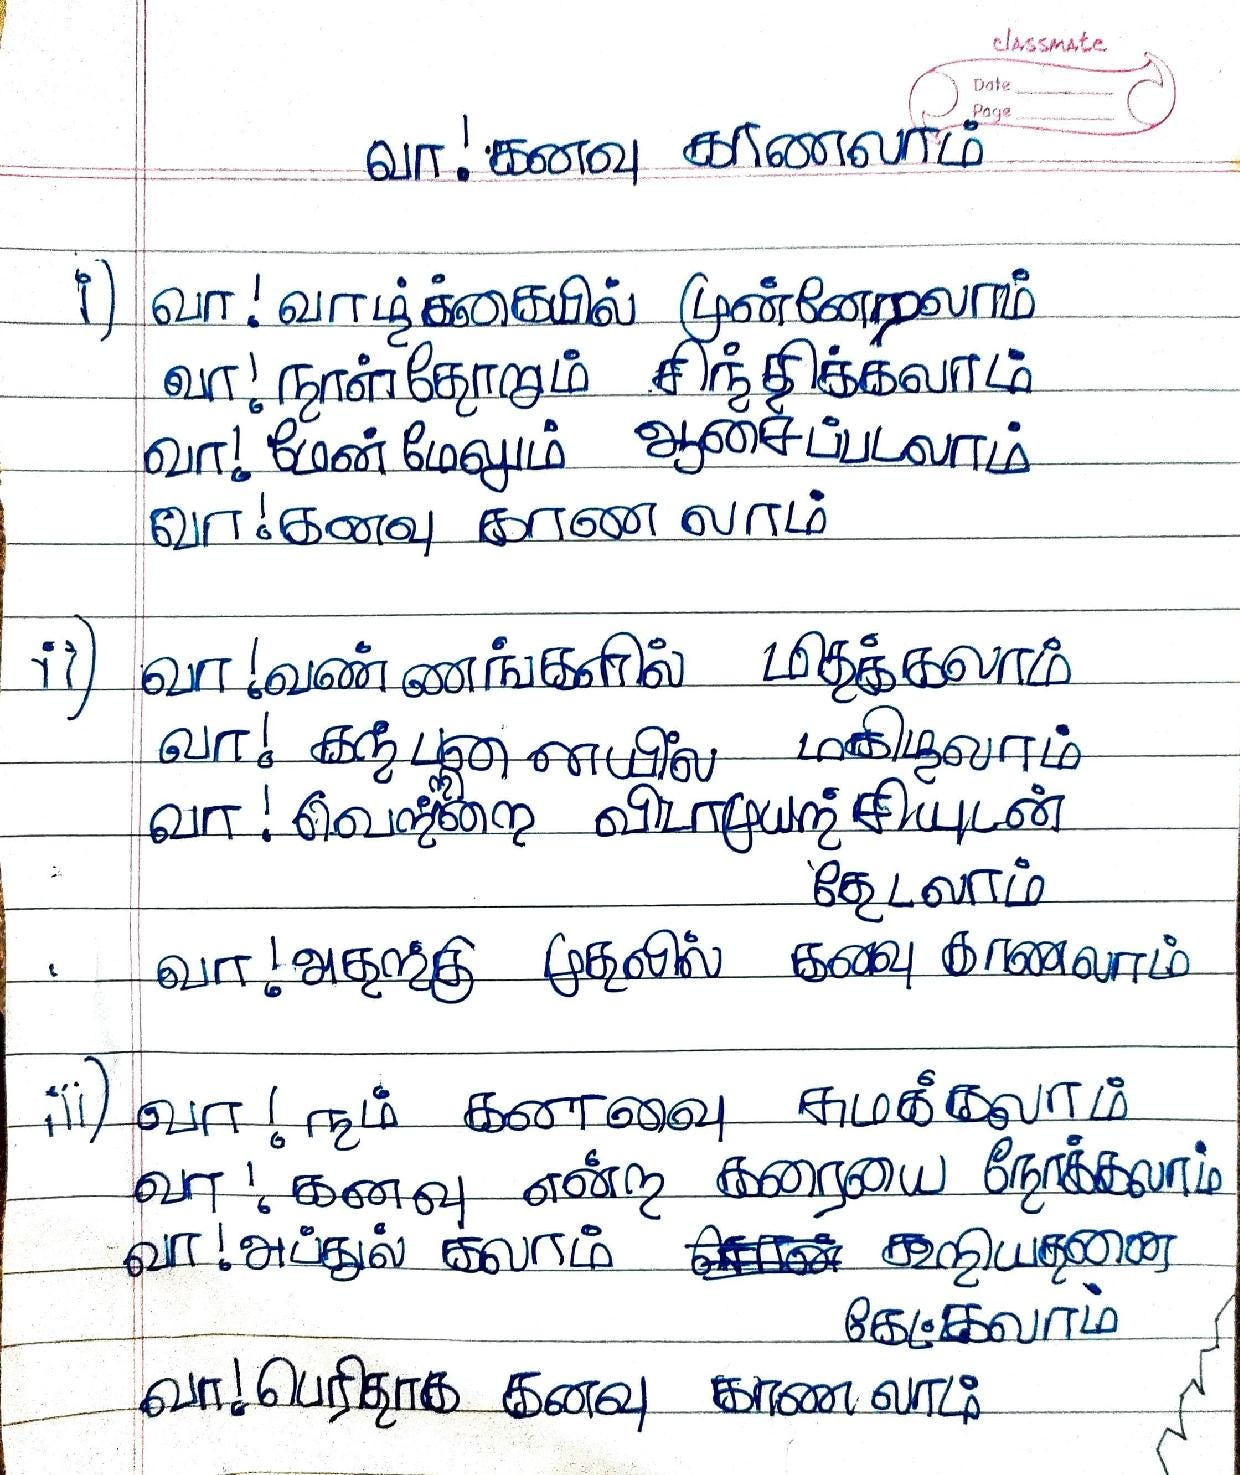 classmate
Date
Page
வா! கனவு காணலாம்
i) வா! வாழ்க்கையில் முன்னேறலாம்
வா! நாள்தோறும் சிந்திக்கலாம்
வா! மேன்மேலும் ஆசைப்படலாம்
வா! கனவு காணலாம்
ii) வா! வண்ணங்களில் மிதக்கலாம்
வா! கற்பனையில் மகிழலாம்
வா! வெற்றியை விடாமுயற்சியுடன்
தேடலாம்
வா! அதற்கு முதலில் கனவு காணலாம்
iii) வா! நம் கனவை சுமக்கலாம்
வா! கனவு என்ற கரையை நோக்கலாம்
வா! அப்துல் கலாம் கூறியதனை
கேட்கலாம்
வா! பெரிதாக கனவு காணலாம்